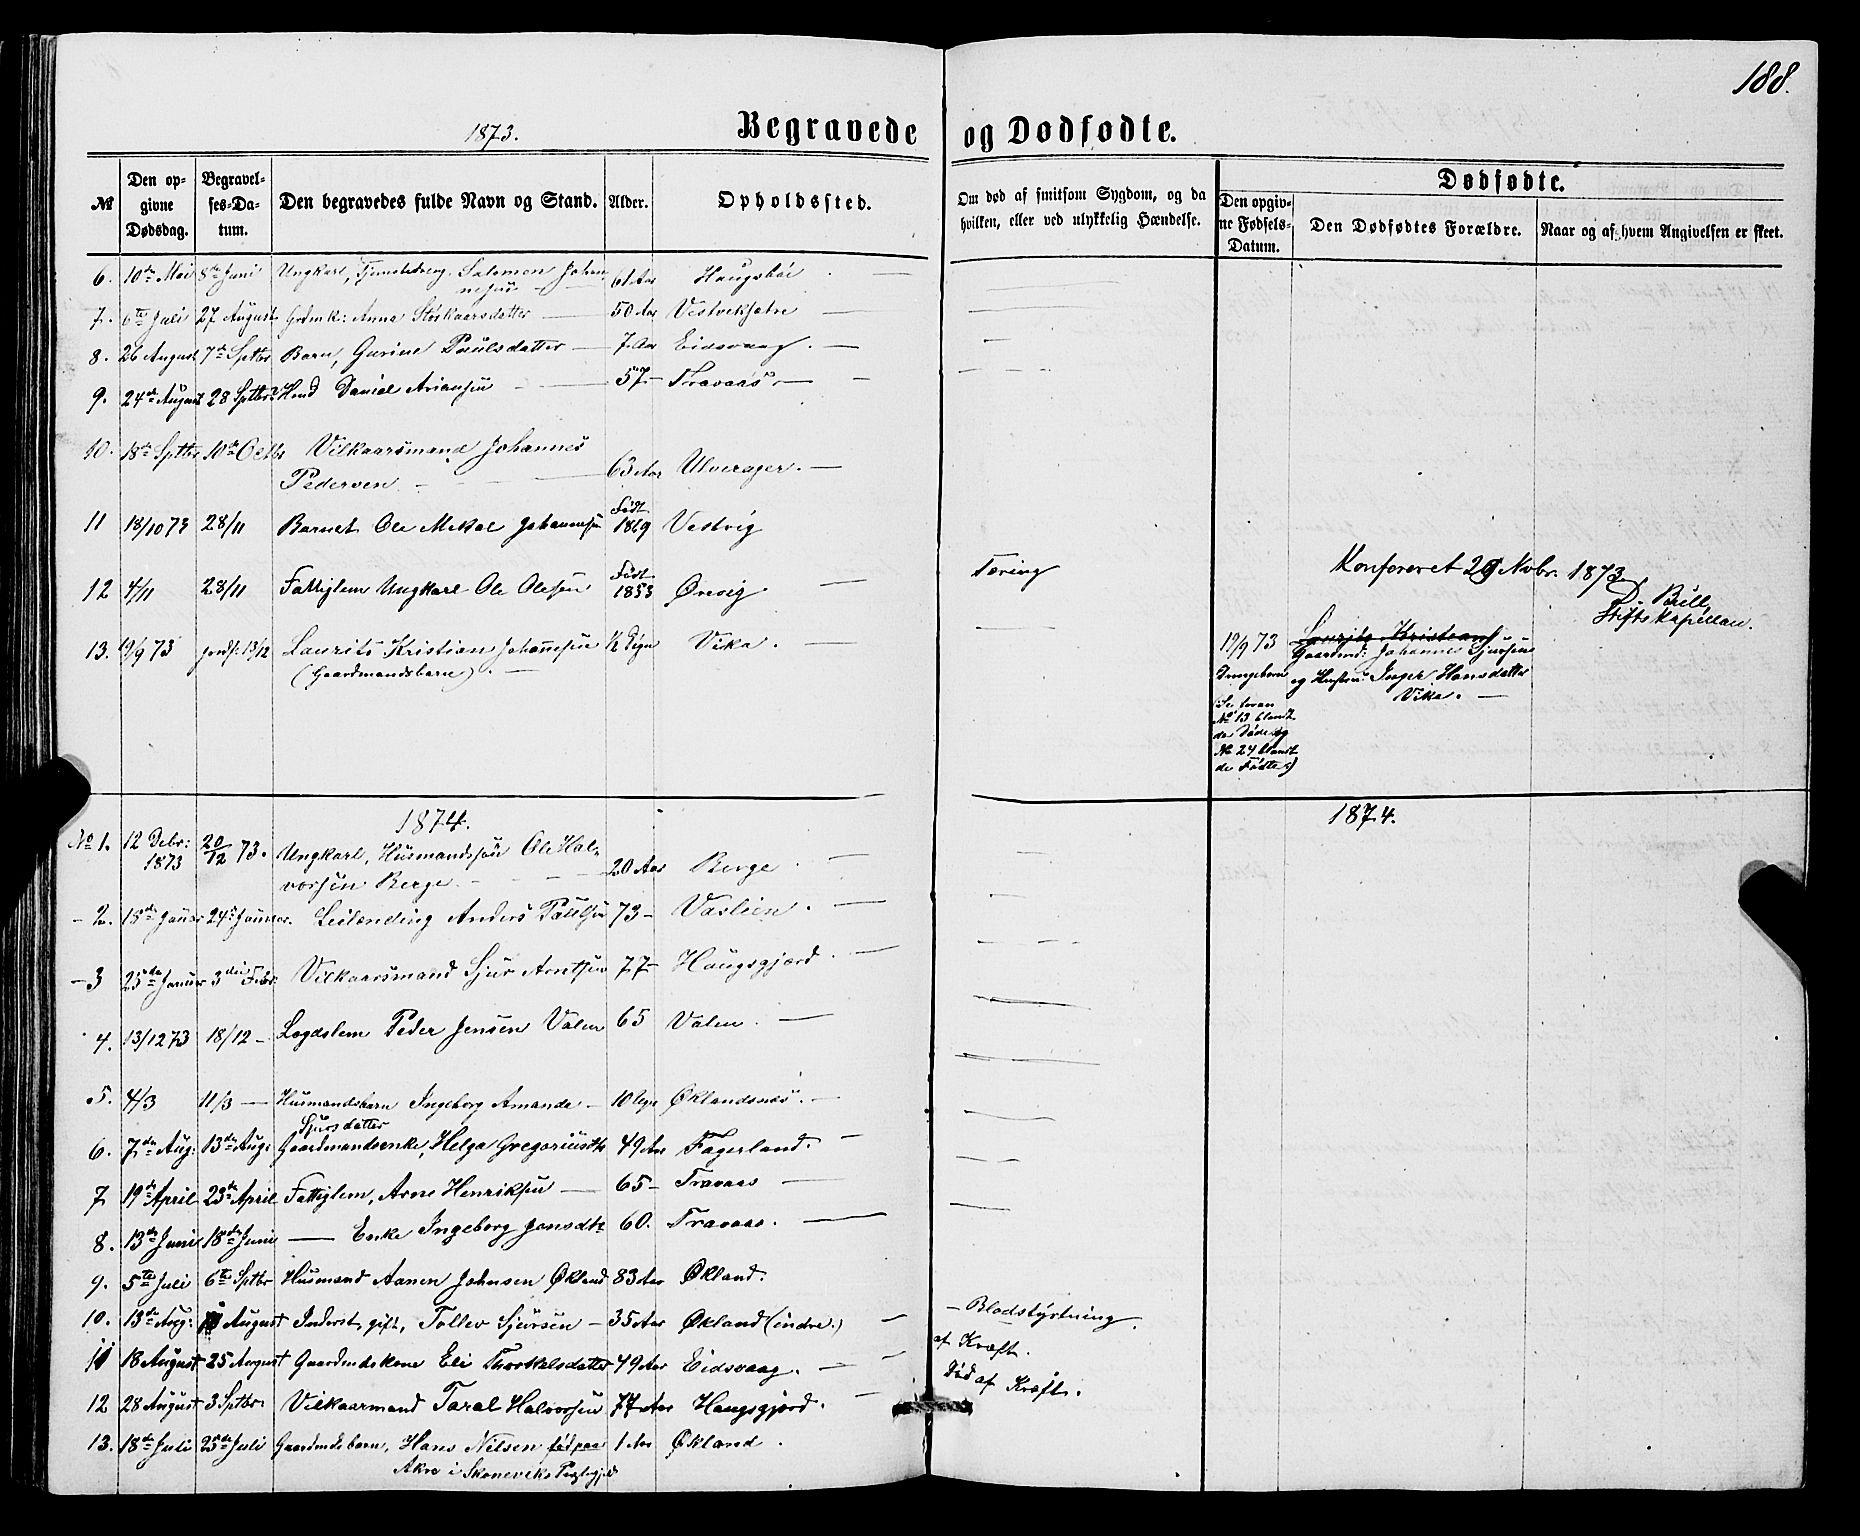 188.
1873. Begravede og Dødfødte.
№ Den opgivne Dødsdag. Begravelses-Datum. Den begravedes fulde Navn og Stand. Alder. Opholdssted. Om død af smitsom Sygdom, og da hvilken, eller ved ulykkelig Hændelse. Dødfødte. Den opgivne Fødsels-Datum. Den Dødfødtes Forældre. Naar og af hvem Angivelsen er skeet.
6. 10de Mai 8de Juni Ungkarl, Salomon Johannesen 61 Aar Haugsbøe
7. 6te Juli 27 August Grdmk: Anna Størkaarsdatter 50 Aar
8. 26 August 7de Sptbr Barn, Gurine Paulsdatter 7 Aar Eidsvaag.
9. 24de August 28 Sptbr. Daniel Ariansen 57 - Travaas
10. 18de Sptbr 10de Octbr Vilkaarsmand Johannes
Pedersen 63 Aar Ulverager.
11 18/10 73 28/11 Barnet Ole Mikal Johannsen Født 1869 Vestvig
12 4/11 28/11 Fattiglem Ungkarl Ole Olesen Født 1853 Ørevig Tæring
Konfereret 29 Novbr. 1873
D. Bull,
Stiftskapellan.
13. 19/9 73 jordf: 13/12 Laurits Kristian Johannesen ½ Døgn Vika.
(Gaardmandsbarn).
19/9 73 Laurits Kristian
Gaardmd: Johannes Sjursen
Drengebarn og Hustru Inger Hansdatter
Vika.
(Se foran
No 13 blandt
de Døde og
No 24 blandt
de Fødte)
1874. 1874.
No 1. 12 Debr: 1873 20/12 73. Ungkarl, Husmandssøn Ole Halvorsen Berge 20 Aar Berge
- 2. 18de Januar 24de Januar. Leilending Anders Paulsen 73 - Vaslien.
- 3 25de Januar 3die Febr. Vilkaarsmand Sjur Arntsen 77 - Haugsgjærd.
4. 13/12 73 18/12 - Lægdslem Peder Jensen Valen 65 Valen.
5. 4/3 11/3 Husmandsbarn Ingeborg Amanda 10 Øklandsnæs.
Sjursdatter
6. 7de Aug: 13de Aug: Gaardmandsenke, Helga Gregoriusdtr 49 Aar Fagerland.
7 19de April 23de April Fattiglem, Arne Henriksen 65 - Travaas
8. 13de Juni 18de Juni — Enke Ingeborg Jonsdtr 60. Travaas.
9. 5te Juli 6te Sptbr Husmand Aanen Johnsen Økland 83 Aar Økland.
10. 13de Aug: August Inderst, gift, Tollev Sjursen 35 Aar Økland (indre.) - Blodstyrtning.
11 18 August 25 August Gaardmdskone Eli Thorkelsdatter 49 Aar Eidsvaag. af Kræft.
12 28 August 3 Sptbr. Vilkaarmand Taral Halvorsen 77 Aar Haugsgjærd. Død af Kræft.
13. 18de Juli 25de Juli Gaardmdsbarn, Hans Nilsen født paa 1 Aar Økland.
Akre i Skonevik